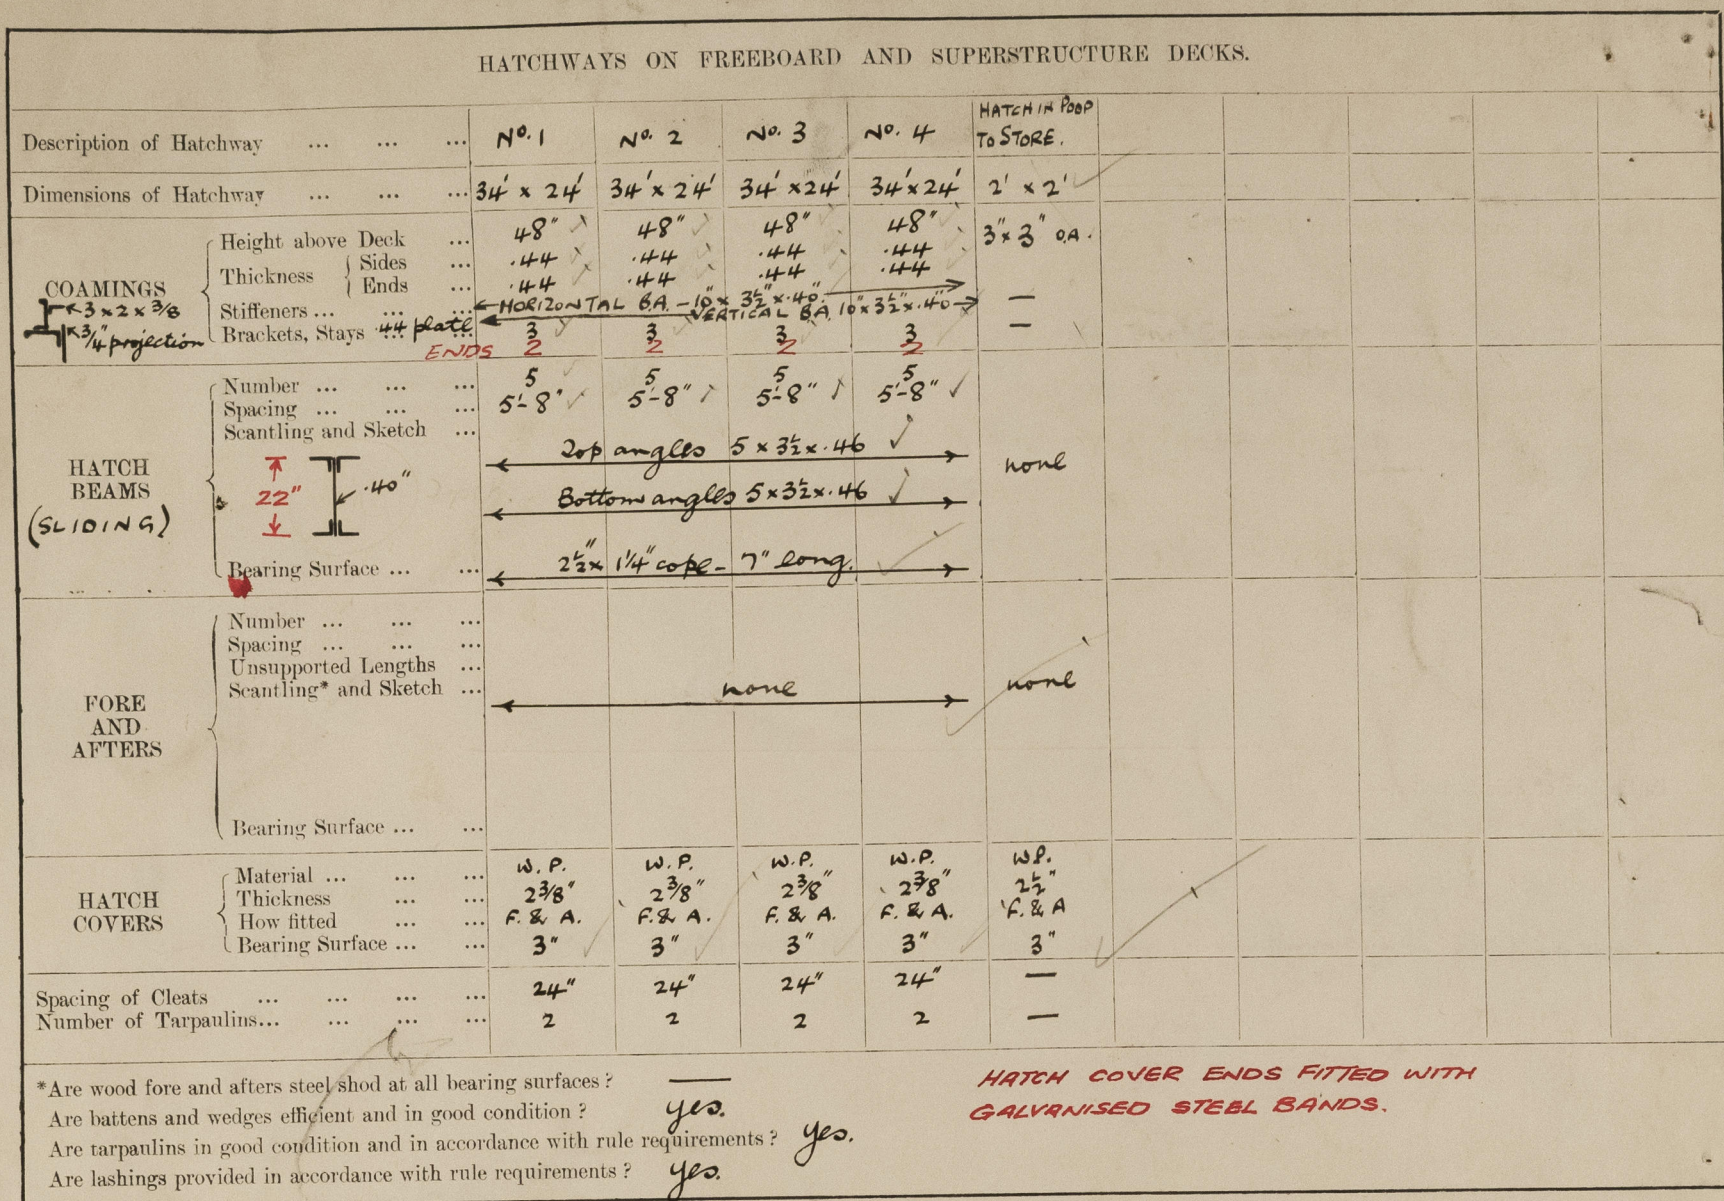 HATCHWAYS ON FREEBOARD AND SUPERSTRUCTURE DECKS.
Description of Hatchway ... ... ... No. 1 No. 2 No. 3 No. 4 HATCH IN POOP TO STORE.
Dimensions of Hatchway ... ... ... 34' x 24' 34' x 24' 34' x 24' 34' x 24' 2' x 2'
COAMINGS
Height above Deck ... 48" 48" 48" 48" 3" x 3" O.A.
Thickness Sides ... .44 .44 .44 .44
Ends ... .44 .44 .44 .44
3 x 2 x 3/8
3/4" projection
Stiffeners ... ... ... HORIZONTAL B.A. – 10" x 3½" x .40" —
VERTICAL B.A. 10" x 3½" x .40
Brackets, Stays .44 plate 3 3 3 3 —
ENDS 2 2 2 2
HATCH BEAMS
(SLIDING)
Number ... ... ... 5 5 5 5
Spacing ... ... ... 5'-8" 5'-8" 5'-8" 5'-8"
Scantling and Sketch ...
22" .40"
Top angles 5 x 3½ x .46
none
Bottom angles 5 x 3½ x .46
Bearing Surface ... ... 2½" x 1¼" cope – 7" long.
FORE AND AFTERS
Number ... ... ...
Spacing ... ... ...
Unsupported Lengths ...
Scantling* and Sketch ... none none
Bearing Surface ... ...
HATCH COVERS
Material ... ... ... W.P. W.P. W.P. W.P. W.P.
Thickness ... ... 2⅜" 2⅜" 2⅜" 2⅜" 2½"
How fitted ... ... F. & A. F. & A. F. & A. F. & A. F. & A
Bearing Surface ... ... 3" 3" 3" 3" 3"
Spacing of Cleats ... ... ... ... 24" 24" 24" 24" —
Number of Tarpaulins... ... ... ... 2 2 2 2 —
*Are wood fore and afters steel shod at all bearing surfaces ? —
Are battens and wedges efficient and in good condition ? yes.
Are tarpaulins in good condition and in accordance with rule requirements ? yes.
Are lashings provided in accordance with rule requirements ? yes.
HATCH COVER ENDS FITTED WITH
GALVANISED STEEL BANDS.